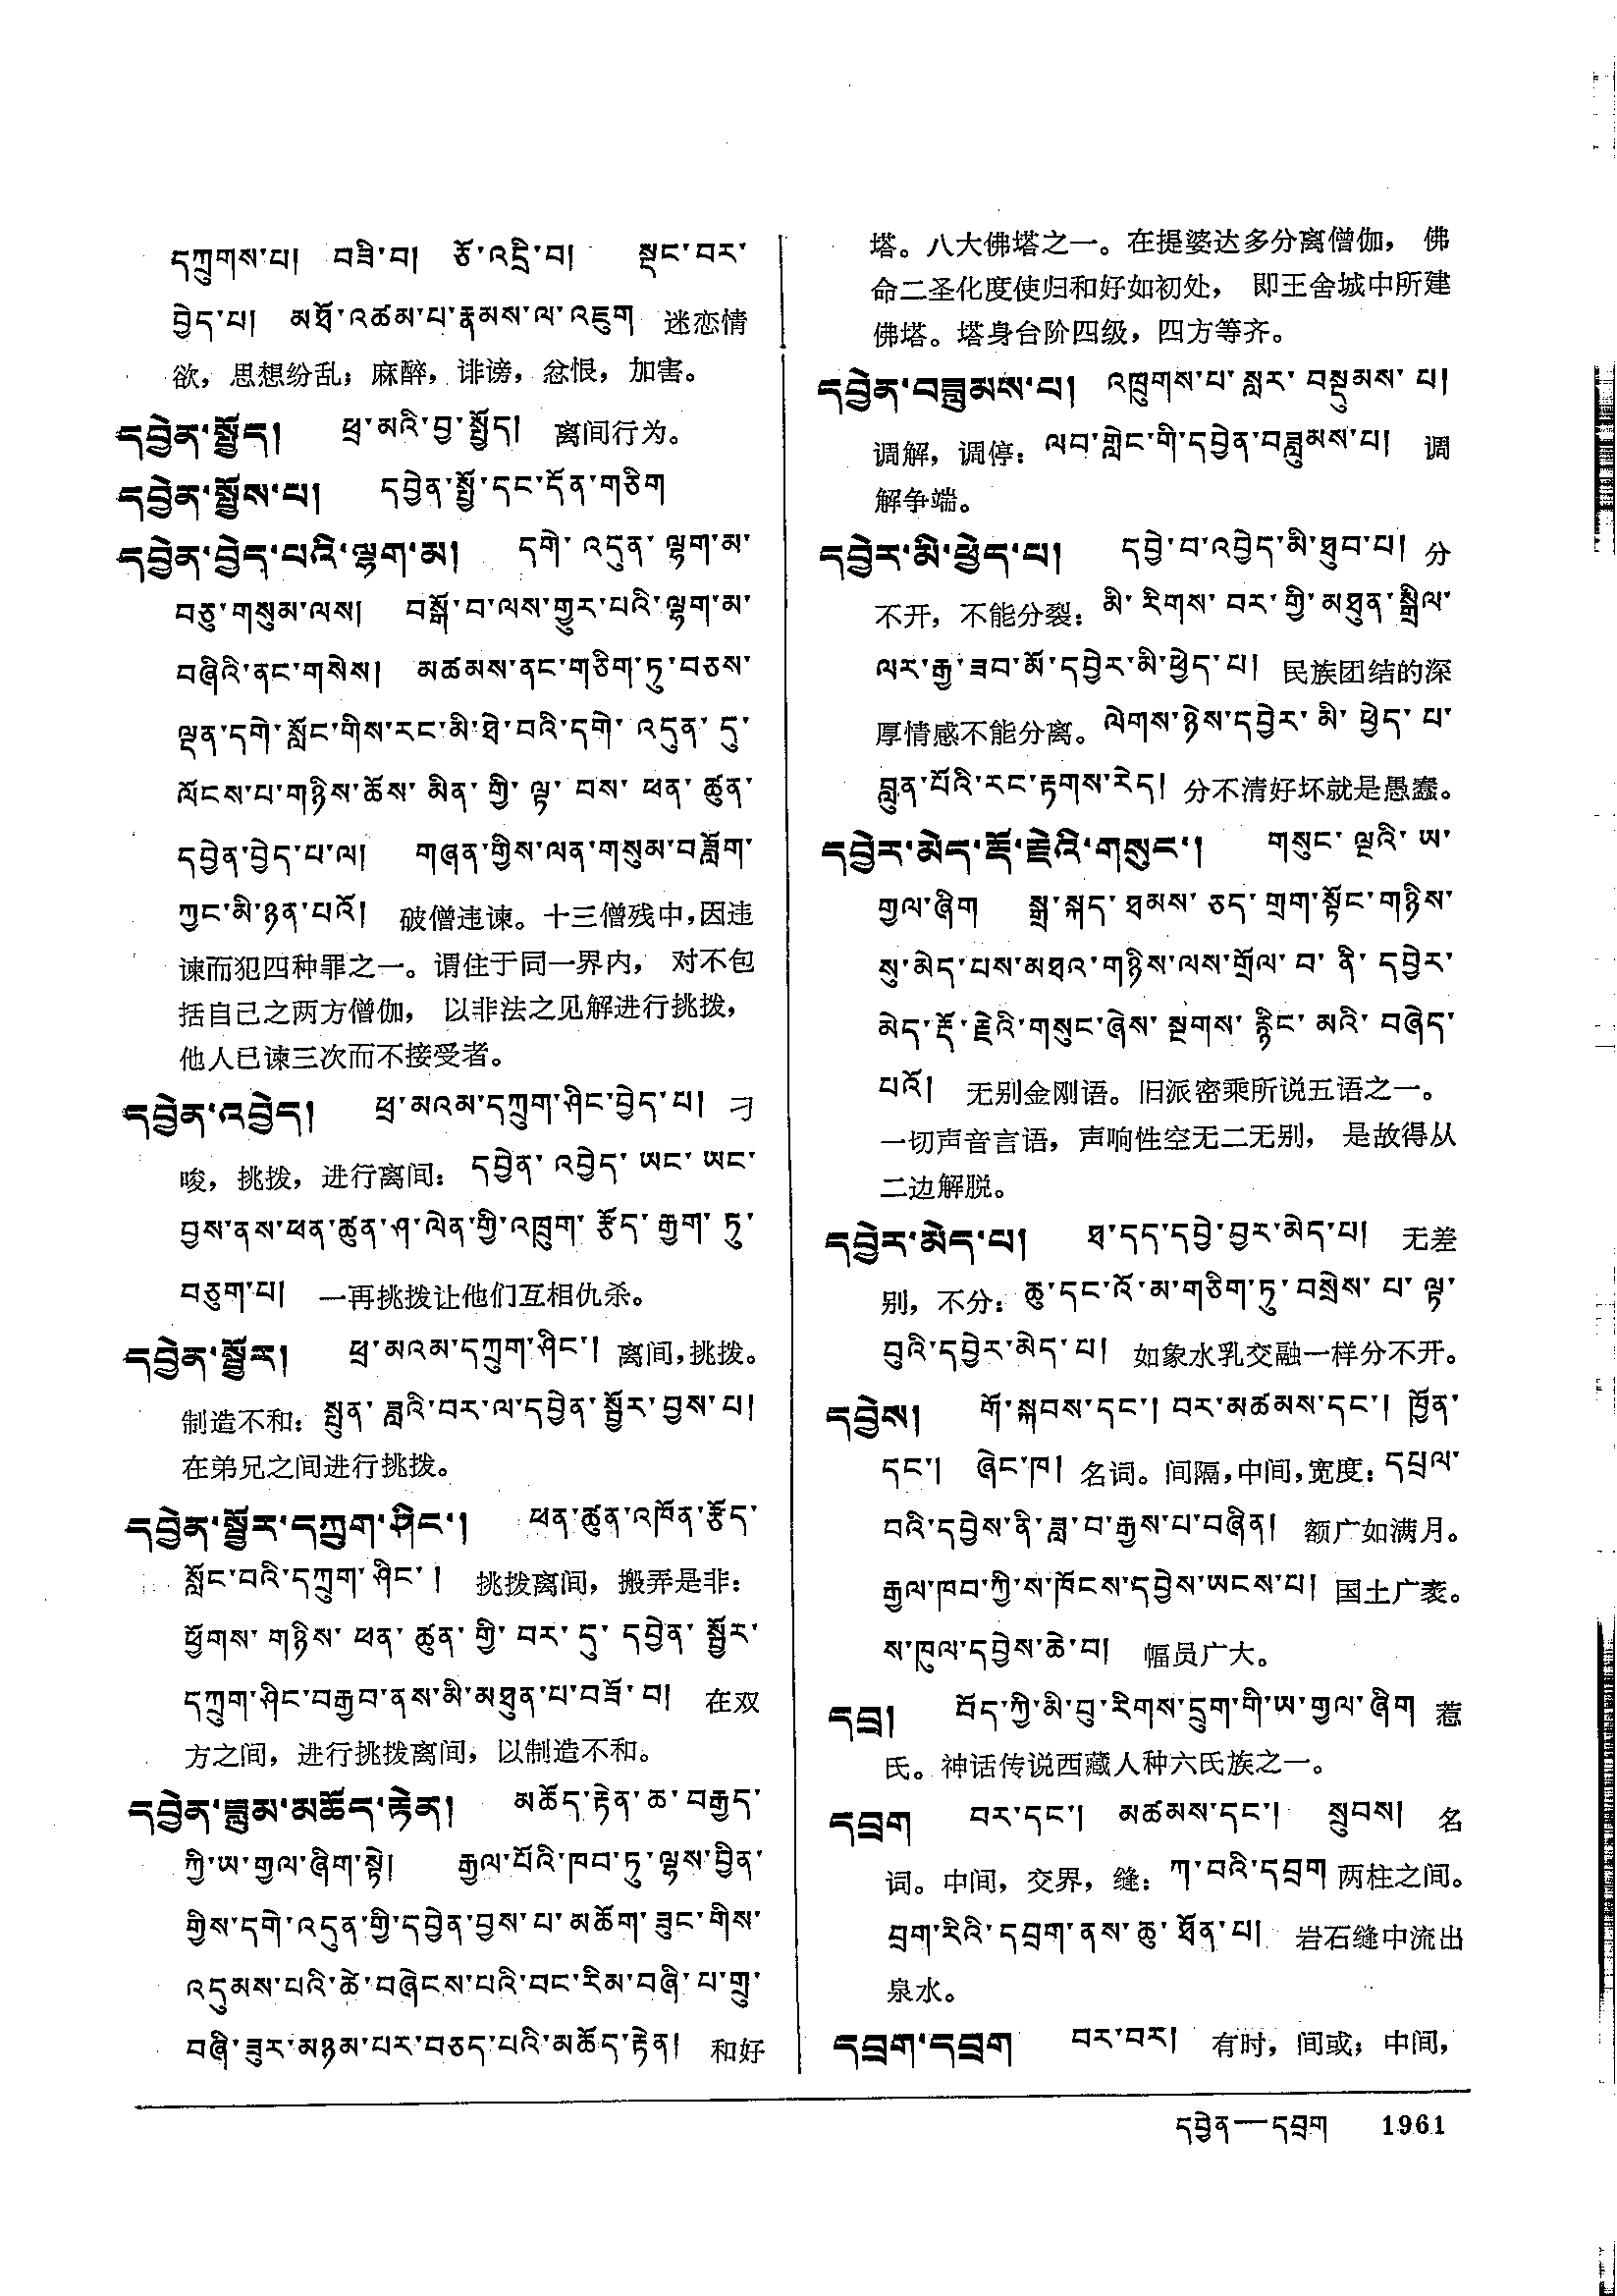 དཀྲུགས་པ། བཟི་བ། ཙོ་འདྲི་བ། སྡང་བར་
བྱེད་པ། མཐོ་འཚམ་པ་རྣམས་ལ་འཇུག 迷恋情
欲，思想纷乱；麻醉，诽谤，忿恨，加害。
དབྱེན་སྤྱོད། ཕྲ་མའི་བྱ་སྤྱོད། 离间行为。
དབྱེན་སྦྱོས་པ། དབྱེན་སྦྱོ་དང་དོན་གཅིག
དབྱེན་བྱེད་པའི་ལྷག་མ། དགེ་འདུན་ལྷག་མ་
བཅུ་གསུམ་ལས། བསྒོ་བ་ལས་གྱུར་པའི་ལྷག་མ་
བཞིའི་ནང་གསེས། མཚམས་ནང་གཅིག་ཏུ་བཅས་
ལྡན་དགེ་སློང་གིས་རང་མི་ཐེ་བའི་དགེ་འདུན་དུ་
ལོངས་པ་གཉིས་ཆོས་མིན་གྱི་ལྟ་བས་ཕན་ཚུན་
དབྱེན་བྱེད་པ་ལ། གཞན་གྱིས་ལན་གསུམ་བཟློག་
ཀྱང་མི་ཉན་པའོ། 破僧违谏。十三僧残中，因违
谏而犯四种罪之一。谓住于同一界内， 对不包
括自己之两方僧伽， 以非法之见解进行挑拨，
他人已谏三次而不接受者。
དབྱེན་འབྱེད། ཕྲ་མའམ་དཀྲུག་ཤིང་བྱེད་པ། 刁
唆，挑拨，进行离间：དབྱེན་འབྱེད་ཡང་ཡང་
བྱས་ནས་ཕན་ཚུན་ཤ་ལེན་གྱི་འཁྲུག་རྩོད་རྒྱག་ཏུ་
བཅུག་པ། 一再挑拨让他们互相仇杀。
དབྱེན་སྦྱོར། ཕྲ་མའམ་དཀྲུག་ཤིང་། 离间，挑拨。
制造不和：སྤུན་ཟླའི་བར་ལ་དབྱེན་སྦྱོར་བྱས་པ།
在弟兄之间进行挑拨。
དབྱེན་སྦྱོར་དཀྲུག་ཤིང་། ཕན་ཚུན་འཁོན་རྩོད་
སློང་བའི་དཀྲུག་ཤིང་། 挑拨离间，搬弄是非：
ཕྱོགས་གཉིས་ཕན་ཚུན་གྱི་བར་དུ་དབྱེན་སྦྱོར་
དཀྲུག་ཤིང་བརྒྱབ་ནས་མི་མཐུན་པ་བཟོ་བ། 在双
方之间，进行挑拨离间，以制造不和。
དབྱེན་ཟླུམ་མཆོད་རྟེན། མཆོད་རྟེན་ཆ་བརྒྱད་
ཀྱི་ཡ་གྱལ་ཞིག་སྟེ། རྒྱལ་པོའི་ཁབ་ཏུ་ལྷས་བྱིན་
གྱིས་དགེ་འདུན་གྱི་དབྱེན་བྱས་པ་མཆོག་ཟུང་གིས་
འདུམས་པའི་ཚེ་བཞེངས་པའི་བང་རིམ་བཞི་པ་གྲུ་
བཞི་ཟུར་མཉམ་པར་བཅད་པའི་མཆོད་རྟེན། 和好
塔。八大佛塔之一。在提婆达多分离僧伽， 佛
命二圣化度使归和好如初处， 即王舍城中所建
佛塔。塔身台阶四级，四方等齐。
དབྱེན་བཟླུམས་པ། འཁྲུགས་པ་སླར་བསྡུམས་པ།
调解，调停：ལབ་གླེང་གི་དབྱེན་བཟླུམས་པ། 调
解争端。
དབྱེར་མི་ཕྱེད་པ། དབྱེ་བ་འབྱེད་མི་ཐུབ་པ། 分
不开，不能分裂：མི་རིགས་བར་གྱི་མཐུན་སྒྲིལ་
ལར་རྒྱ་ཟབ་མོ་དབྱེར་མི་ཕྱེད་པ། 民族团结的深
厚情感不能分离。ལེགས་ཉེས་དབྱེར་མི་ཕྱེད་པ་
བླུན་པོའི་རང་རྟགས་རེད། 分不清好坏就是愚蠢。
དབྱེར་མེད་རྡོ་རྗེའི་གསུང་། གསུང་ལྔའི་ཡ་
གྱལ་ཞིག སྒྲ་སྐད་ཐམས་ཅད་གྲག་སྟོང་གཉིས་
སུ་མེད་པས་མཐའ་གཉིས་ལས་གྲོལ་བ་ནི་དབྱེར་
མེད་རྡོ་རྗེའི་གསུང་ཞེས་སྔགས་རྙིང་མའི་བཞེད་
པའོ། 无别金刚语。旧派密乘所说五语之一。
一切声音言语，声响性空无二无别， 是故得从
二边解脱。
དབྱེར་མེད་པ། ཐ་དད་དབྱེ་བྱར་མེད་པ། 无差
别，不分：ཆུ་དང་འོ་མ་གཅིག་ཏུ་བསྲེས་པ་ལྟ་
བུའི་དབྱེར་མེད་པ། 如象水乳交融一样分不开。
དབྱེས། གོ་སྐབས་དང་། བར་མཚམས་དང་། ཁྱོན་
དང་། ཞེང་ཁ། 名词。间隔，中间，宽度：དཔྲལ་
བའི་དབྱེས་ནི་ཟླ་བ་རྒྱས་པ་བཞིན། 额广如满月。
རྒྱལ་ཁབ་ཀྱི་ས་ཁོངས་དབྱེས་ཡངས་པ། 国土广袤。
ས་ཁུལ་དབྱེས་ཆེ་བ། 幅员广大。
དབྲ། བོད་ཀྱི་མི་བུ་རིགས་དྲུག་གི་ཡ་གྱལ་ཞིག 惹
氏。神话传说西藏人种六氏族之一。
དབྲག བར་དང་། མཚམས་དང་། སྲུབས། 名
词。中间，交界，缝：ཀ་བའི་དབྲག 两柱之间。
བྲག་རིའི་དབྲག་ནས་ཆུ་ཐོན་པ། 岩石缝中流出
泉水。
དབྲག་དབྲག བར་བར། 有时，间或；中间，
དབྱེན——དབྲག 1961